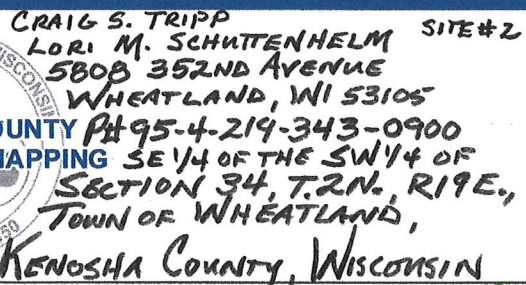 CRAIG S. TRIPP
SITE #2
LORI M. SCHUTTENHELM
5808 352ND AVENUE
WHEATLAND, WI 53105
P# 95-4-219-343-0900
OUNTY
MAPPING
SE 1/4 OF THE SW 1/4 OF
SECTION 34, T.2N., R19E.,
TOWN OF WHEATLAND,
KENOSHA COUNTY, WISCONSIN
WISCONSIN
50